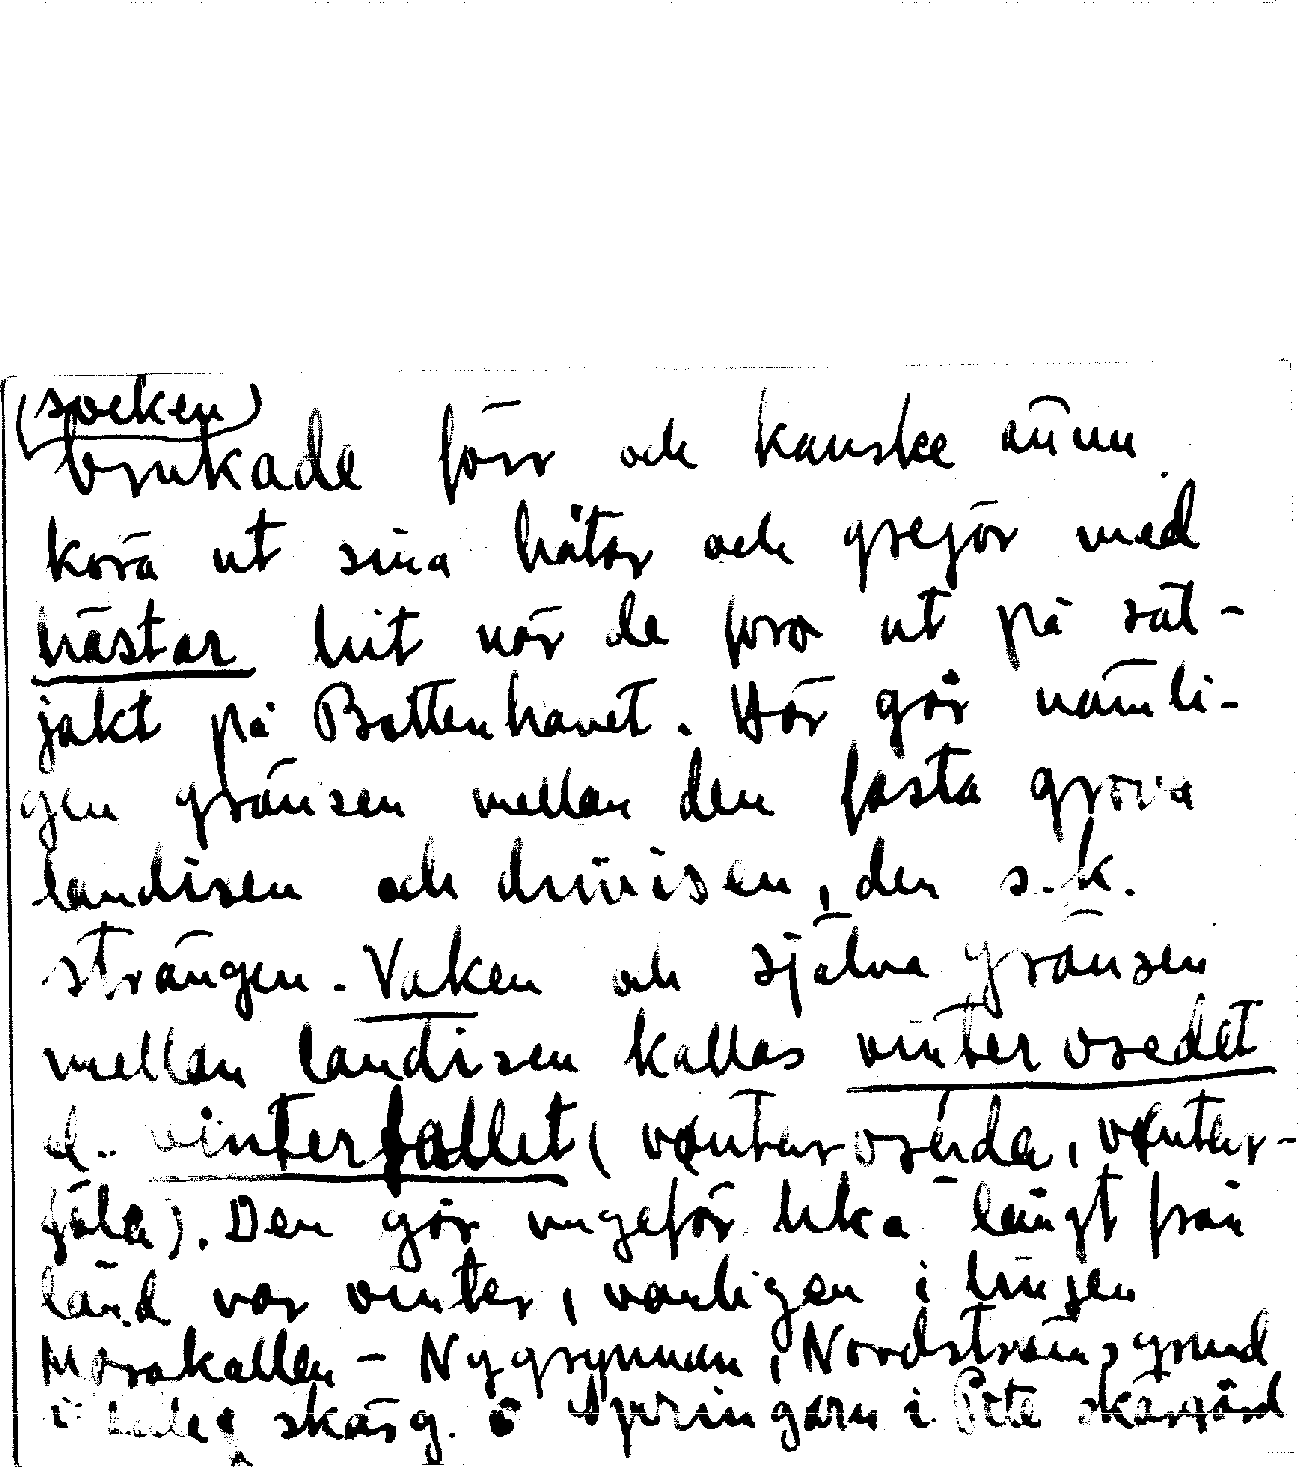 (socken)
brukade förr och kanske ännu
köra ut sina båtar och grejor med
hästar hit når de foro ut på säl-
jakt på Bottenhavet. Här går nämli-
gen gränsen mellan den fasta grova
landisen och drivisen, den s.k.
strängen. Vaken och själva gränsen
mellan landisen kallas vinterosedet
el. vinterfallet (
). Den går ungefär lika långt från
land var vinter, vanligen i linjen
Morakallen - Nyggrynnan, Nordströmsgrund
i Luleå skärg. o Springarn i Pite skärgård